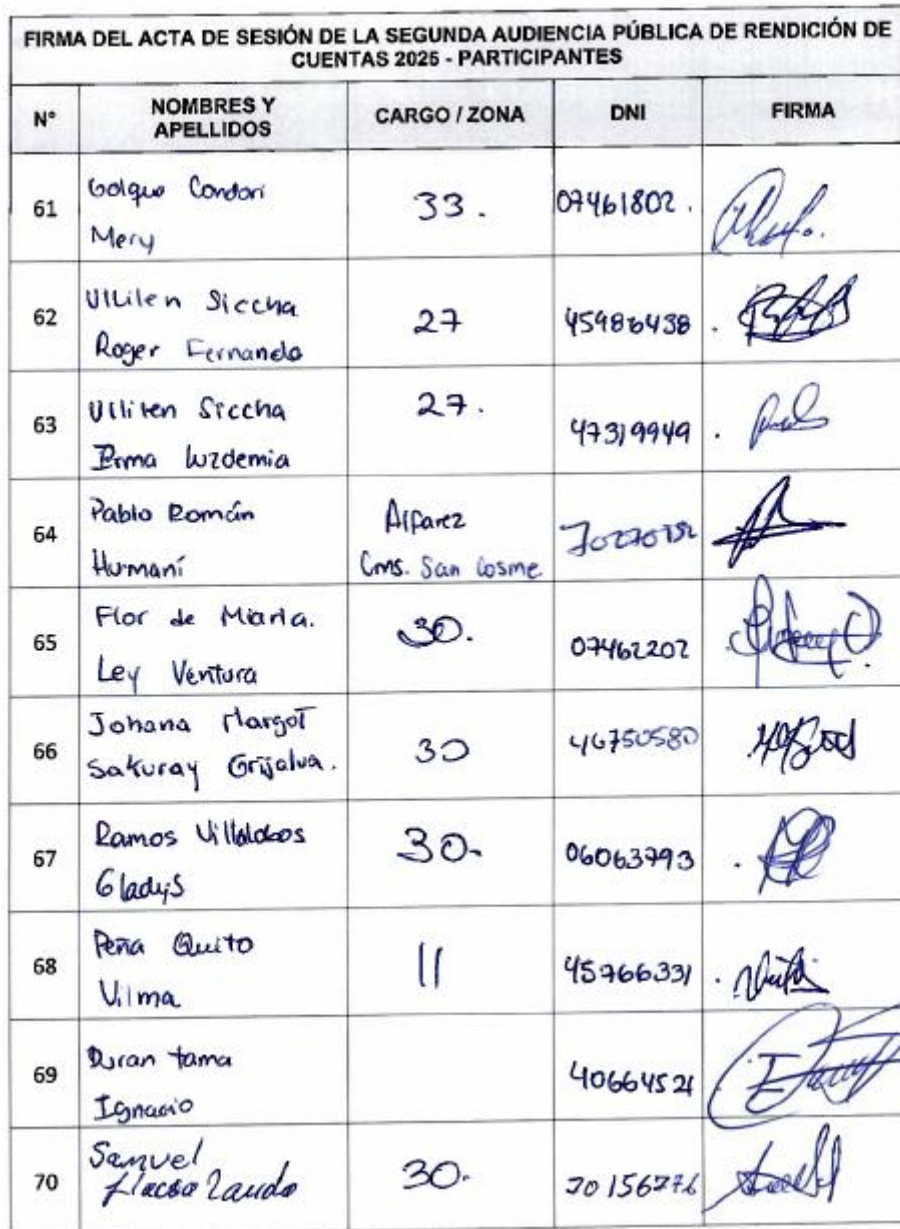 FIRMA DEL ACTA DE SESIÓN DE LA SEGUNDA AUDIENCIA PÚBLICA DE RENDICIÓN DE
CUENTAS 2025 - PARTICIPANTES
N° NOMBRES Y APELLIDOS CARGO / ZONA DNI FIRMA
61 Golque Condori
Mery 33. 07461802.
62 Ulilen Siccha
Roger Fernando 27 45986438.
63 Ulilen Siccha
Irma Luzdemia 27. 47319949.
64 Pablo Román
Humaní Alfarez
Cms. San Cosme
65 Flor de Maria.
Ley Ventura 30. 07462202
66 Johana Margot
Sakuray Grijalva. 30 46750580
67 Ramos Villalobos
Gladys 30. 06063793.
68 Peña Quito
Vilma 11 45766331.
69 Duran tama
Ignacio 40664521
70 Samuel
30.